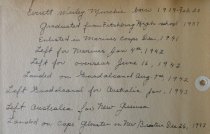 Everett Wesley Minchie born 1919 Feb 22
Graduated from Fitchburg High school 1937
Enlisted in Marines Corps Dec. 1941
Left for Marines Jan 4th 1942
Left for overseas June 16, 1942
Landed on Guadalcanal Aug 7th 1942
Left Guadalcanal for Australia Jan. 1943
Left Australia for New Guinea
Landed on Cape Gloucester in New Britain Dec 26, 1943